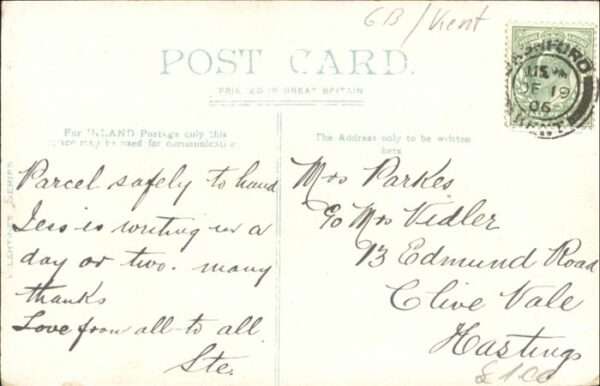 GB/Kent
POST CARD.
PRINTED IN GREAT BRITAIN
For INLAND Postage only this
space may be used for communication
The Address only to be written
here
ASHFORD
19
06
KENT
Parcel safely to hand
Jess is writing in a
day or two. many
thanks
Love from all to all.
Ste.
Mrs Parkes
c/o Mrs Vidler
13 Edmund Road
Clive Vale
Hastings
SERIES